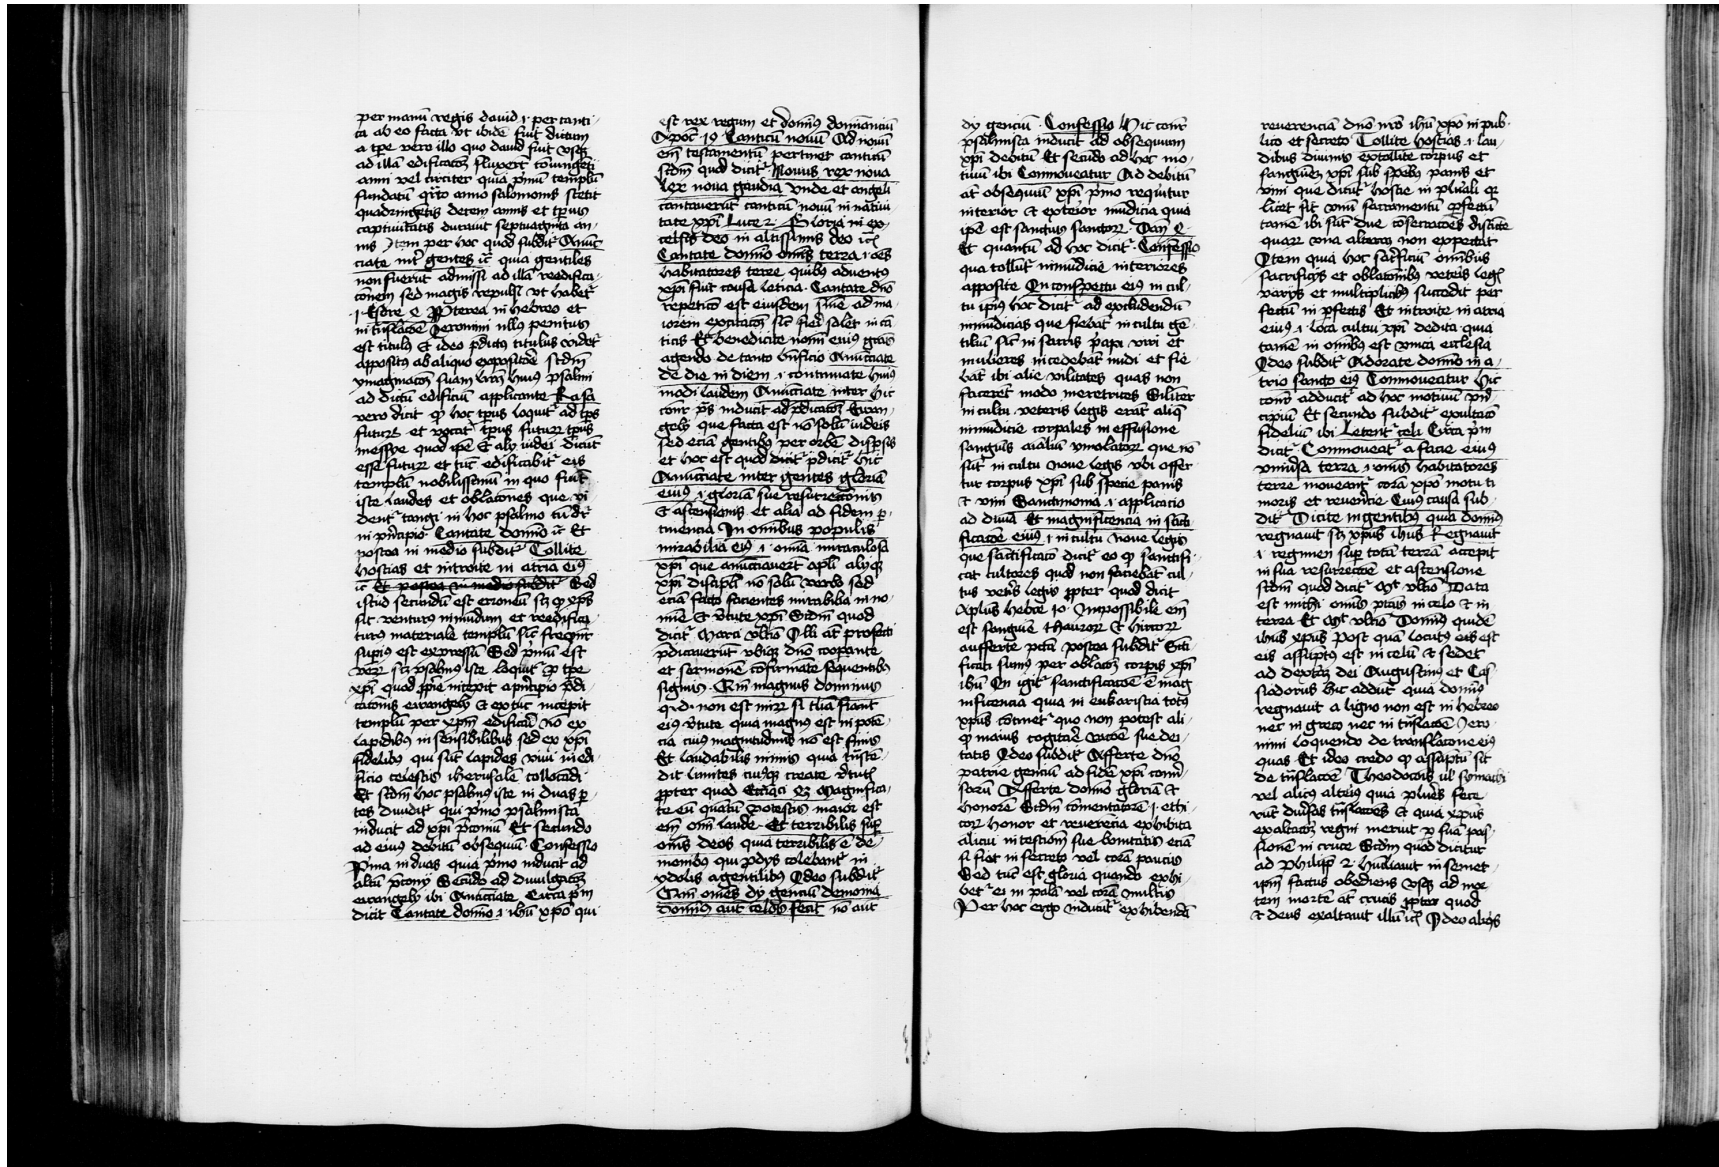 per manu regis david ⁊ per canti⸗
ca ab eo facta vt ibide fuit dictum
a tpe vero illo quo david fuit vsq
ad illa edificacoe fluxert
anni vel circiter quia pmu templu
fundatu qrto anno salomonis stetit
quadringetis decem annis et tpus
captivitatis duravit septuaginta an⸗
nis Item per hoc quod subdit Anuc
ciate int gentes ic quia gentiles
non fuerut admissi ad illa reedifica⸗
conem sed magis repulsi vt habet
1 Esdre 4 Pterea in hebreo et
in tnslacoe Jeronimi nullus penitus
est titulus et ideo pdictus titulus videt
appositus ab aliquo expositore scdm
ymaginacoe suam huius psalmi
ad dictu edificiu applicante Rasa
vero dicit q hoc tpus loquit ad tps
futur et vocat tpus futur tpus
messye quod ipe et alij iudei dicut
esse futur et tuc edificabit eis
templu nobilissimu in quo fiut
iste laudes et oblacones que vi⸗
dent tangi in hoc psalmo tu dr
in pncipio Cantate domio ic Et
postea in medio subdit Tollite
hostias et introite in atria eius
ic Et postea in medio subdit Sed
istud secundu est erroneu sz q xps
sit venturus in mundum et reedifica⸗
turus materiale templu sicut freqnt
supius est expressu Sed pmu est
ver sz psalmus iste loquit p tpe
xpi quod ppie incepit a pncipio pdi⸗
cacionis ewangelij et extuc incepit
templu per xpm edificari no ex
lapidibus insensibilibus sed ex xpi
fidelibus qui sut lapides vivi in edi⸗
ficio celestis iherusale collocadi
Et scdm hoc psalmus iste in duas p⸗
tes dividit qui pmo psalmista
inducit ad xpi pconiu Et secundo
ad eius debitu obsequiu Confessio
Pma in duas quia pmo inducit ad
altu pconij Secudo ad divulgacoe
ewangelij ibi Anucciate Circa pm
dicit Cantate domio ⁊ ihu xpo qui
est rex regum et domius dominanciu
Apoc 19 Canticu novu Ad novu
em testamentu pertinet canticu
scdm quod dicit Novus rex nova
lex nova gaudia Vnde et angeli
cantaverut canticu novu in nativi⸗
tate xpi Luce 2 Gloria in ex⸗
celsis deo in altissimis deo ic
Cantate domio omis terra ⁊ oes
habitatores terre quibus adventus
xpi fuit causa leticia Cantate dno
repeticio est eiusdem sume ad ma⸗
iorem excitacoe sicut fieri solet in ca
ticis Et benedicite nomi eius gras
agendo de tanto bnficio Anucciate
de die in diem ⁊ continuate huius
modi laudem Anucciate inter hic
conr ps inducit ad pdicacoe Ewan⸗
gelij que facta est no solu iudeis
sed ecia gentibus per orbe dispsis
et hoc est quod dicit pdicit hic
Anucciate inter gentes gloria
eius ⁊ gloria sue resurrectionis
et ascensionis et alia ad fidem p⸗
tinencia In omibus populis
mirabilia eius ⁊ omia miraculosa
xpi que anucciavert apli alijq
xpi discipli no solu verbo sed
ecia facto facientes mirabilia in no⸗
mie et vtute xpi Scdm quod
dicit Marci vltio Illi at profecti
pdicaverut vbiq dno coopante
et sermone cofirmate sequentibus
signis Qm magnus dominus
q.d. non est mir si talia fiant
eius vtute quia magnus est in pote⸗
cia cuius magnitudinis no est finis
Et laudabilis nimis quia tnscen⸗
dit limites cuiusq create vtutis
ppter quod Ecciaci 43 Magnifica⸗
te eu quatu potestis maior est
em omi laude Et terribilis sup
omis deos quia terribilis e de⸗
monibus qui pdys colebant in
ydolis a gentilibus Ideo subdit
Qm omes dij genciu demonia
dominus aut celos fecit no aut
dij genciu Confessio Hic conr
psalmista inducit ad obsequium
xpi debitu Et secudo ad hoc mo⸗
tiuu ibi Conmoveatur Ad debitu
at obsequiu xpi pmo requirtur
interior et exterior mudicia quia
ipe est sanctus sanctor Dan 9
Et quantu ad hoc dicit Confessio
qua tollut inmudicie interiores
apposite In conspectu eius in cul⸗
tu ipius hoc dicit ad excludendu
inmudicias que fiebat in cultu ge⸗
tiliu sicut in sacris priapi viri et
mulieres incedebat nudi et fie⸗
bat ibi alie vilitates quas non
faceret modo meretrices Siliter
in cultu veteris legis erat aliq
inmudicie corpales in effusione
sanguis aialiu ymolator que no
sut in cultu nove legis vbi offer⸗
tur corpus xpi sub specie panis
et vini Sanctimonia ⁊ applicacio
ad divia Et magnificencia in scti⸗
ficacoe eius ⁊ in cultu nove legis
que sanctificaco dicit eo q sanctifi⸗
cat cultores quod non faciebat cul⸗
tus veteris legis ppter quod dicit
Aplus hebre 10 Impossibile em
est sanguie thauror et hircor
aufferre pcta postea subdit Scti⸗
ficati sumus per oblacoe corpis xpi
ihu In igit sanctificacoe e mag⸗
nificencia quia in eukaristia totus
xpus cotinet quo non potest ali⸗
q maius cogitari racoe sue dei⸗
tatis Ideo subdit Afferte dno
patrie genciu ad fide xpi conv⸗
sorum Afferte domio gloria et
honore Scdm comentatore 1 ethi⸗
cor honor et reverecia exhibita
alicui in testiom sue bonitatis ecia
si fiat in secreto vel cora paucis
Sed tuc est gloria quando exhi⸗
bet ei in pala vel cora multis
Per hoc ergo inducut exhibenda
reverencia dno nro ihu xpo in pub⸗
lico et secreto Tollite hostias ⁊ lau⸗
dibus divinis extollite corpus et
sanguiem xpi sub spebus panis et
vini que dicut hostie in plurali qr
licet sit vnu sacramentu pfectu
tame ibi sut due cosecracoes distincte
quar vna altera non expectat
Item quia hoc sacrificiu omibus
sacrificijs et oblacionibus veteris legis
varijs et multiplicibus succedit per⸗
fectu inpfectis Et introite in atria
eius ⁊ loca cultui xpi dedita quia
tame in omibus est vnica ecclesia
Ideo subdit Adorate domio in a⸗
trio sancto eius Conmoveatur Hic
conr adducit ad hoc motiuu pn⸗
cipiu Et secundo subdit exultaco
fideliu ibi Letent celi Circa pm
dicit Conmoveat a facie eius
vniversa terra ⁊ omis habitatores
terre moveant cora xpo motu ti⸗
moris et reverencie Cuius causa sub⸗
dit Dicite in gentibus quia domius
regnavit sz xpus ihus Regnavit
⁊ regimen sup tota terra accepit
in sua resurrectioe et ascensione
scdm quod dicit Mt vltio Data
est michi omis ptas in celo et in
terra Et Mr vltio Domius quide
ihus xpus post qua locutus eis est
eis assuptus est in celu et sedet
ad dextra dei Augustinus et Cas⸗
siodorus hic addut quia domius
regnavit a ligno non est in hebreo
nec in greco nec in tnslacoe Jero⸗
nimi loquendo de translacone eius
quas Et ideo credo q assuptu sit
de tnslacoe Theodocois vl symachi
vel alicuius alterius quia plures fece⸗
rut diversas tnslacoes et quia xpus
exaltacoe regni meruit p sua pas⸗
sione in cruce Scdm quod dicitur
ad Philip 2 Humiliavit in semet⸗
ipm factus obediens vsq ad mor⸗
tem morte at crucis ppter quod
et deus exaltavit illu ic Ideo aliqs